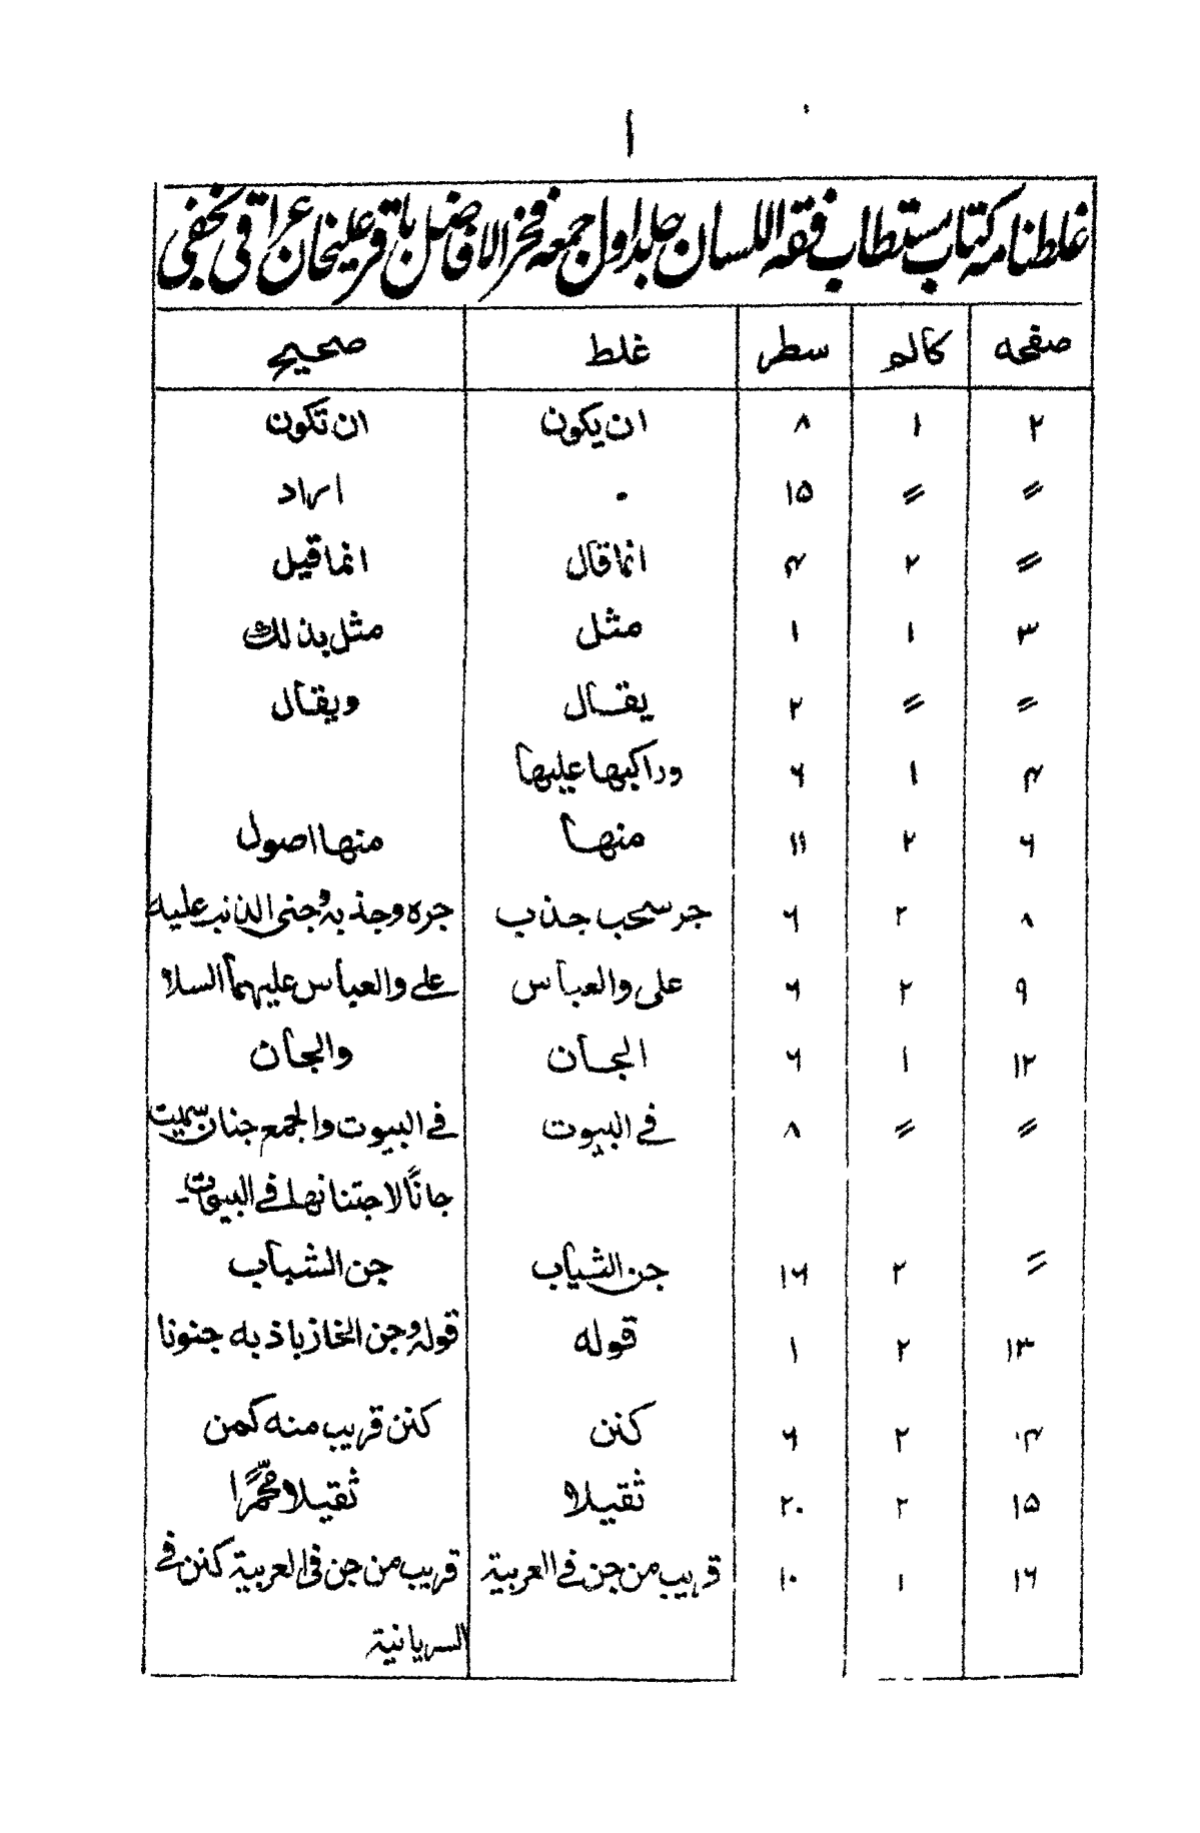 ا
غلطنامہ کتاب مستطاب فقہ اللسان جلد اول جمعہ فخر الافاضل باقر علیخان عراقی نجفی
صفحہ کالم سطر غلط صحیح
۲ ۱ ۸ ان یکون ان تکون
〃 〃 ۱۵ ۰ ایراد
〃 ۲ ۴ انما قال انما قیل
۳ ۱ ۱ مثل مثل بذلك
〃 〃 ۲ یقال ویقال
۴ ۱ ۶ وراکبها علیها
۶ ۲ ۱۱ منها منها اصول
۸ ۲ ۶ جر سحب جذب جره وجذبه وجنی الذنب علیه
۹ ۲ ۶ علی والعباس علے والعباس علیهما السلام
۱۲ ۱ ۶ الجان والجان
〃 〃 ۸ فے البیوت فے البیوت والجمع جنان سمیت
جانًا لاجتنانها فے البیوت۔
〃 ۲ ۱۶ جن الشیاب جن الشباب
۱۳ ۲ ۱ قوله قوله وجن الخازباذ به جنونا
۱۴ ۲ ۶ کنن کنن قریب منه کمن
۱۵ ۲ ۲۰ ثقیلا ثقیلا
۱۶ ۱ ۱۰ قریب من جن فے العربیة قریب من جن فی العربیة کنن فے
السریانیة